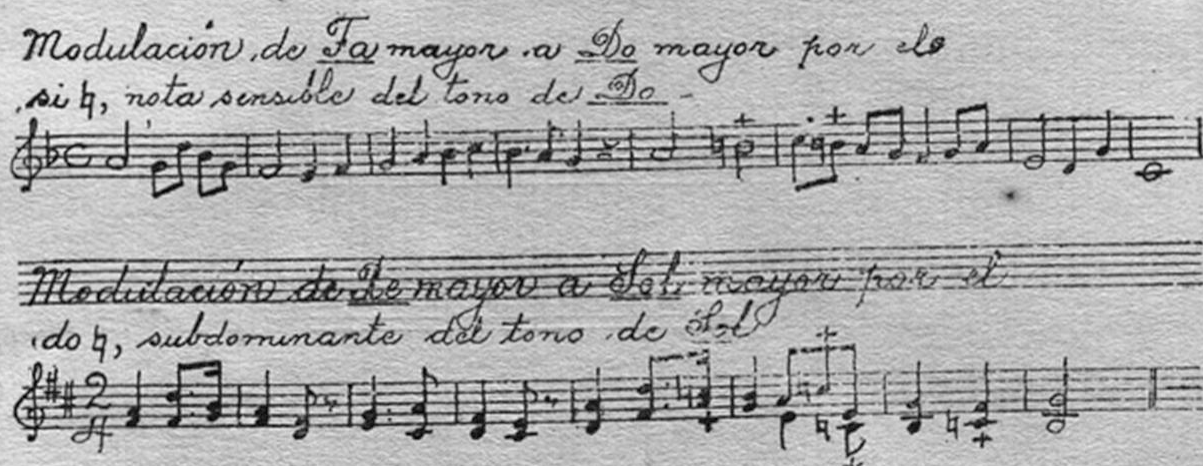 Modulación de Fa mayor a Do mayor por el
si ♮, nota sensible del tono de Do
Modulación de Re mayor a Sol mayor por el
do ♮, subdominante del tono de Sol
2
4